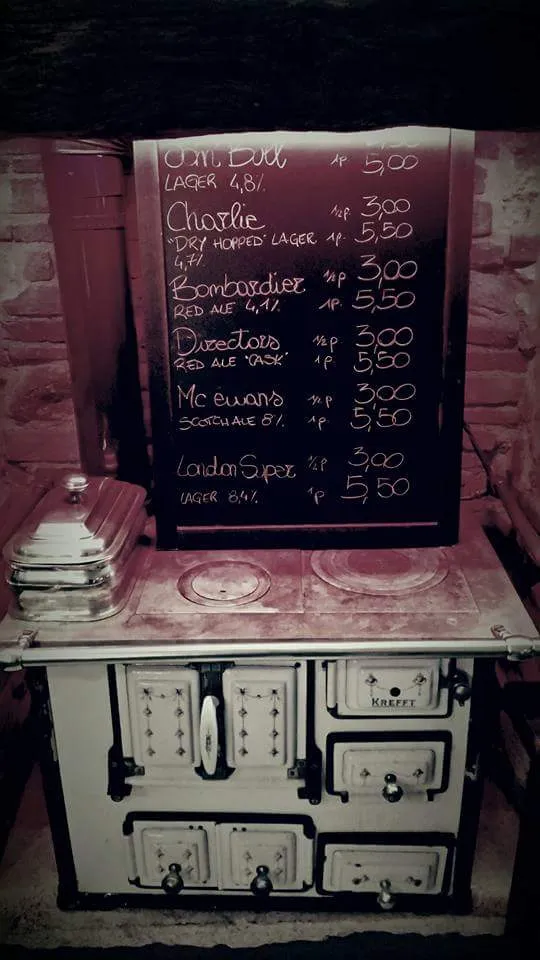 LAGER 4,8%
1p 5,00
Charlie ½p 3,00
"DRY HOPPED" LAGER 1p. 5,50
4,7%
Bombardier ½p 3,00
RED ALE 4,1% 1p. 5,50
Directors ½p 3,00
RED ALE "CASK" 1p 5,50
Mc ewans ½p. 3,00
SCOTCH ALE 8% 1p 5,50
London Super ½p 3,00
LAGER 8,4% 1p 5,50
KREFFT